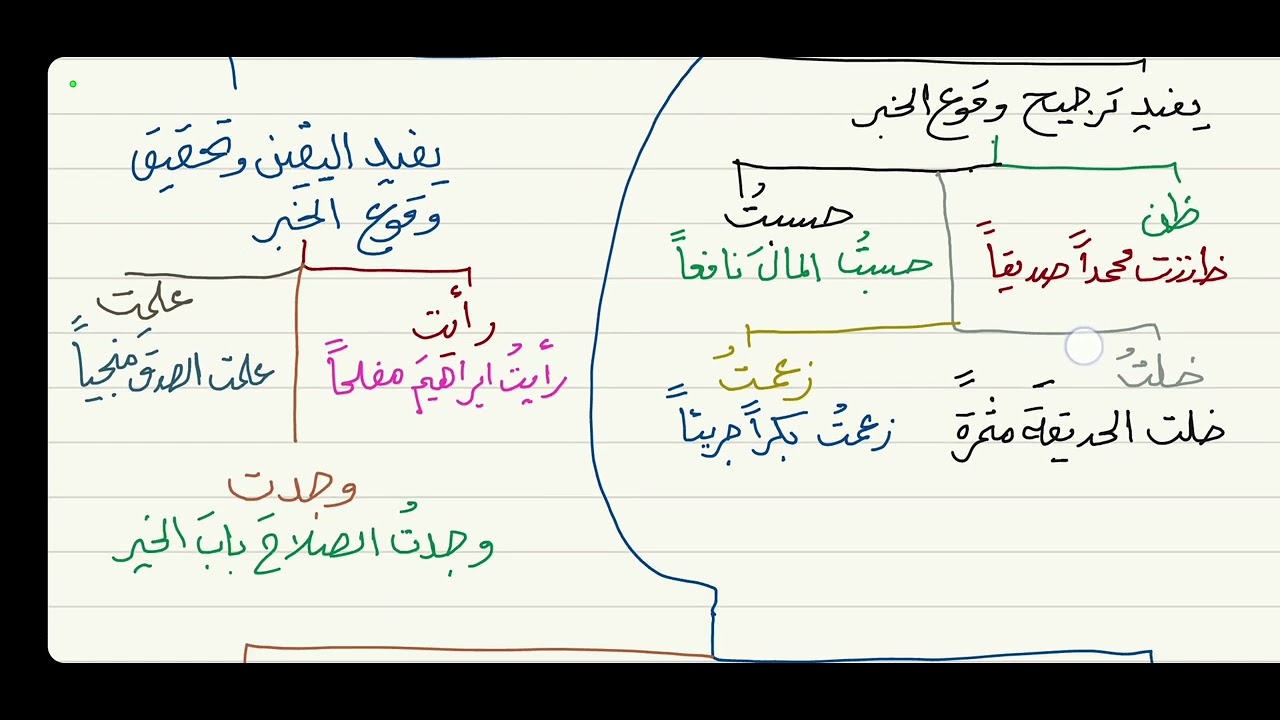 يفيد ترجيح وقوع الخبر
ظن
ظننت محمداً صديقاً
حسبتُ
حسبتُ المالَ نافعاً
خلتُ
خلت الحديقةَ مثمرةً
زعمتُ
زعمتُ بكراً جريئاً
يفيد اليقين وتحقيق
وقوع الخبر
رأيت
رأيتُ ابراهيمَ مفلحاً
علمت
علمت الصدقَ منجياً
وجدت
وجدتُ الصلاحَ بابَ الخير